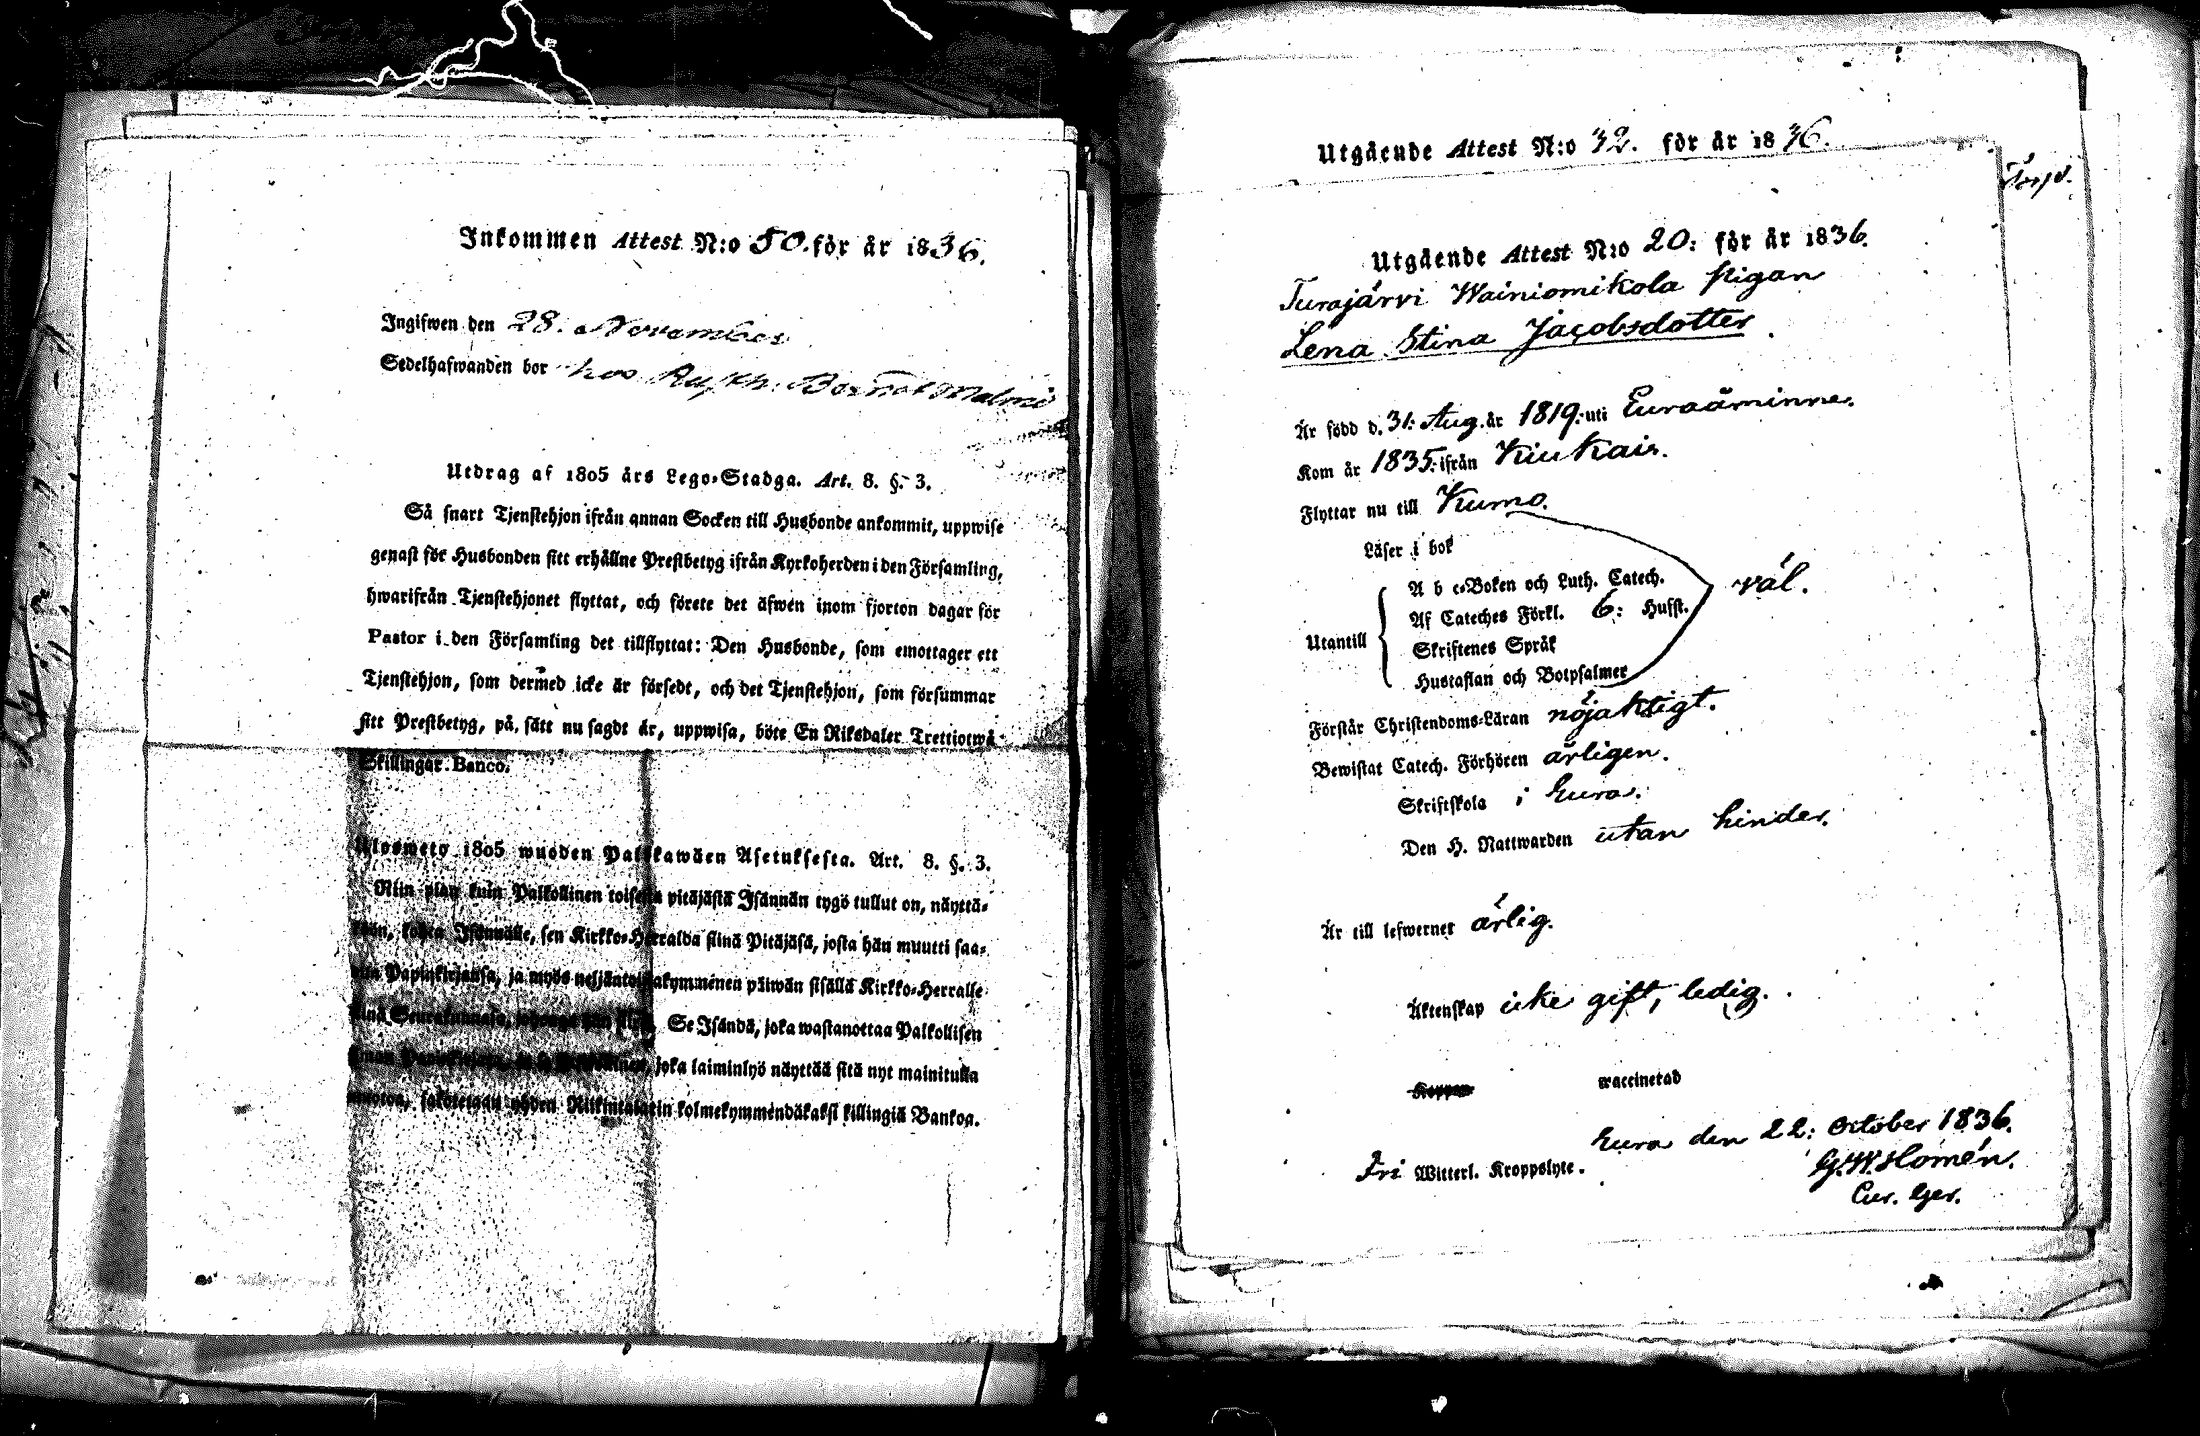 Inkommen Attest N:o 50. för år 1836.
Ingifwen den 28. November
Sedelhafwanden bor hos Rusth. Malmi
Utdrag af 1805 års Lego-Stadga. Art. 8. §. 3.
Så snart Tjenstehjon ifrån annan Socken till Husbonde ankommit, uppwise
genast för Husbonden sitt erhållne Prestbetyg ifrån Kyrkoherden i den Församling,
hwarifrån Tjenstehjonet flyttat, och förete det äfwen inom fjorton dagar för
Pastor i den Församling det tillflyttat: Den Husbonde, som emottager ett
Tjenstehjon, som dermed icke är försedt, och det Tjenstehjon, som försummar
sitt Prestbetyg, på sätt nu sagdt är, uppwisa, böte En Riksdaler Trettiotwå
Skillingar Banco.
Uloswety 1805 wuoden Palkkawäen Asetuksesta. Art. 8. §. 3.
Niin pian kuin Palkollinen toisesta pitäjästä Isännän tygö tullut on, näyttä-
köön, kohta Isännälle, sen Kirkko-Herralda siinä Pitäjäsä, josta hän muutti saa-
Papinkirjansa, ja myös neljäntoistakymmenen päiwän sisällä Kirkko-Herralle
siinä Seurakunnasa, Se Isändä, joka wastanottaa Palkollisen
ilman joka laiminlyö näyttää sitä nyt mainitulla
muotoa, sakotetaan yhden Riikintalarin kolmekymmendäkaksi killingiä Bankoa.
Utgående Attest N:o 32. för år 1836.
Utgående Attest N:o 20: för år 1836.
Turajärvi Wainiomikola Pigan
Lena Stina Jacobsdotter
Är född d. 31: Aug. år 1819: uti Euraåminne.
Kom år 1835: ifrån Kiukais.
Flyttar nu till Kumo.
Läser i bok
A b c-Boken och Luth. Catech.
väl.
Af Cateches Förkl. 6: Hufst.
Utantill
Skriftenes Språk
Hustaflan och Botpsalmer
Förstår Christendoms-Läran nöjaktigt.
Bewistat Catech. Förhören årligen.
Skriftskola i Eura.
Den H. Nattwarden utan hinder.
Är till lefwernet ärlig.
Äktenskap icke gift, ledig.
Koppor waccinerad
Eura den 22: October 1836.
Fri Witterl. Kroppslyte.
G. W. Homén.
Cur. Ger.